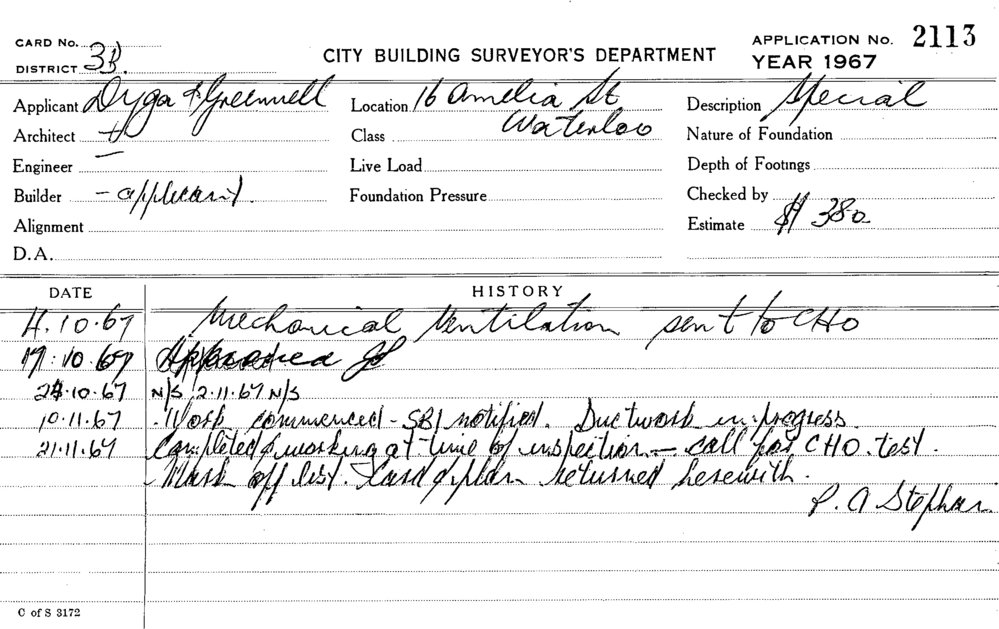 CARD No.
DISTRICT 3B.
CITY BUILDING SURVEYOR'S DEPARTMENT
APPLICATION No. 2113
YEAR 1967
Applicant Dyga & Greenwell
Location 16 Amelia St
Waterloo
Description Special
Architect
Class
Nature of Foundation
Engineer —
Live Load
Depth of Footings
Builder - applicant.
Foundation Pressure
Checked by
Alignment
Estimate $380
D.A.
DATE
HISTORY
4.10.67 Mechanical Ventilation sent to CHO
17.10.67 Approved
24.10.67 N/S 2.11.67 N/S
10.11.67 Work commenced - SBI notified. Ductwork in progress
21.11.67 Completed & working at time of inspection - call for CHO. test.
Mark off list. Card & plan returned herewith.
P. A Stephan
C of S 3172